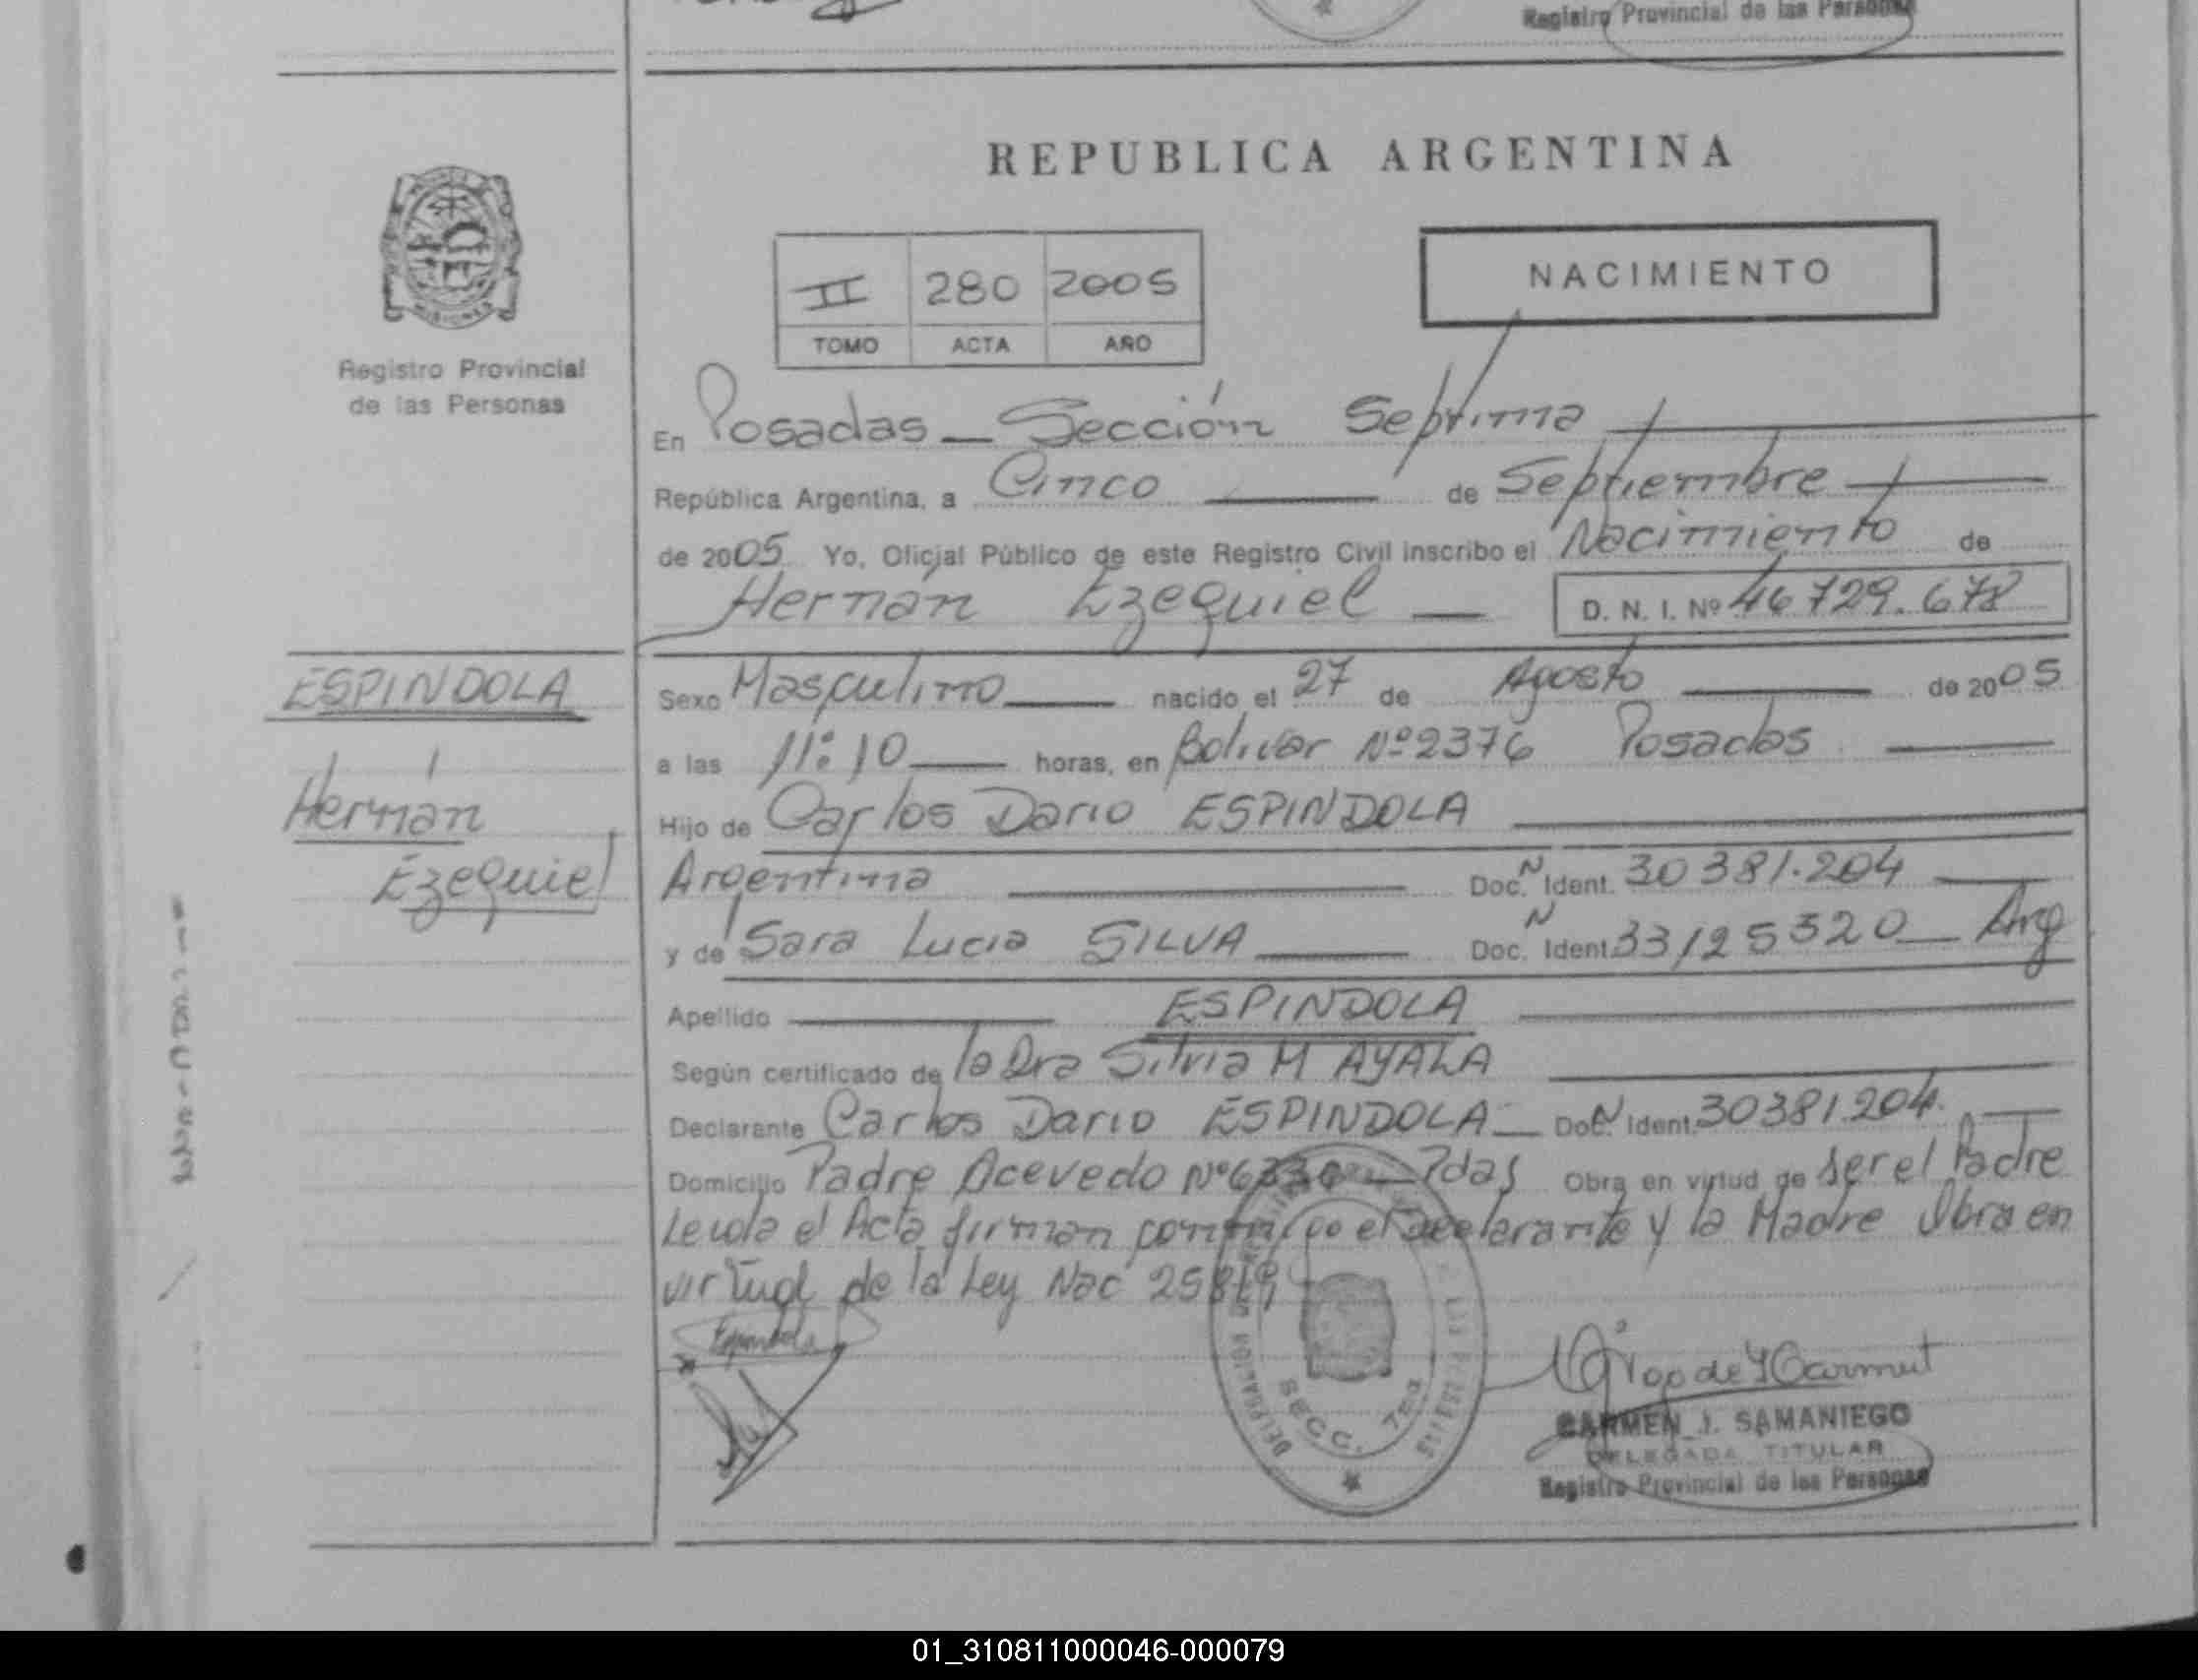 Registro Provincial de las Personas
REPUBLICA ARGENTINA
II 280 2005
TOMO ACTA AÑO
NACIMIENTO
MISIONES
Registro Provincial
de las Personas
En Posadas - Sección Septima
República Argentina, a Cinco de Septiembre
de 2005 Yo, Oficial Público de este Registro Civil inscribo el Nacimiento de
Hernán Ezequiel D. N. I. Nº 46.729.678
ESPINDOLA
Hernán
Ezequiel
Sexo Masculino nacido el 27 de Agosto de 2005
a las 11:10 horas, en Bolivar Nº 2376 Posadas
Hijo de Carlos Dario ESPINDOLA
Argentina Doc. N Ident. 30381.204
y de Sara Lucia SILVA Doc. N Ident. 33125320 Arg
Apellido ESPINDOLA
Según certificado de la Dra Silvia M AYALA
Declarante Carlos Dario ESPINDOLA Doc. N Ident. 30381.204
Domicilio Padre Acevedo Nº Pdas Obra en virtud de ser el Padre
Leida el Acta firman conmigo el declarante y la Madre Obra en
virtud de la Ley Nac
Espindola
SECC. 7ma
CARMEN J. SAMANIEGO
DELEGADA TITULAR
Registro Provincial de las Personas
01_310811000046-000079